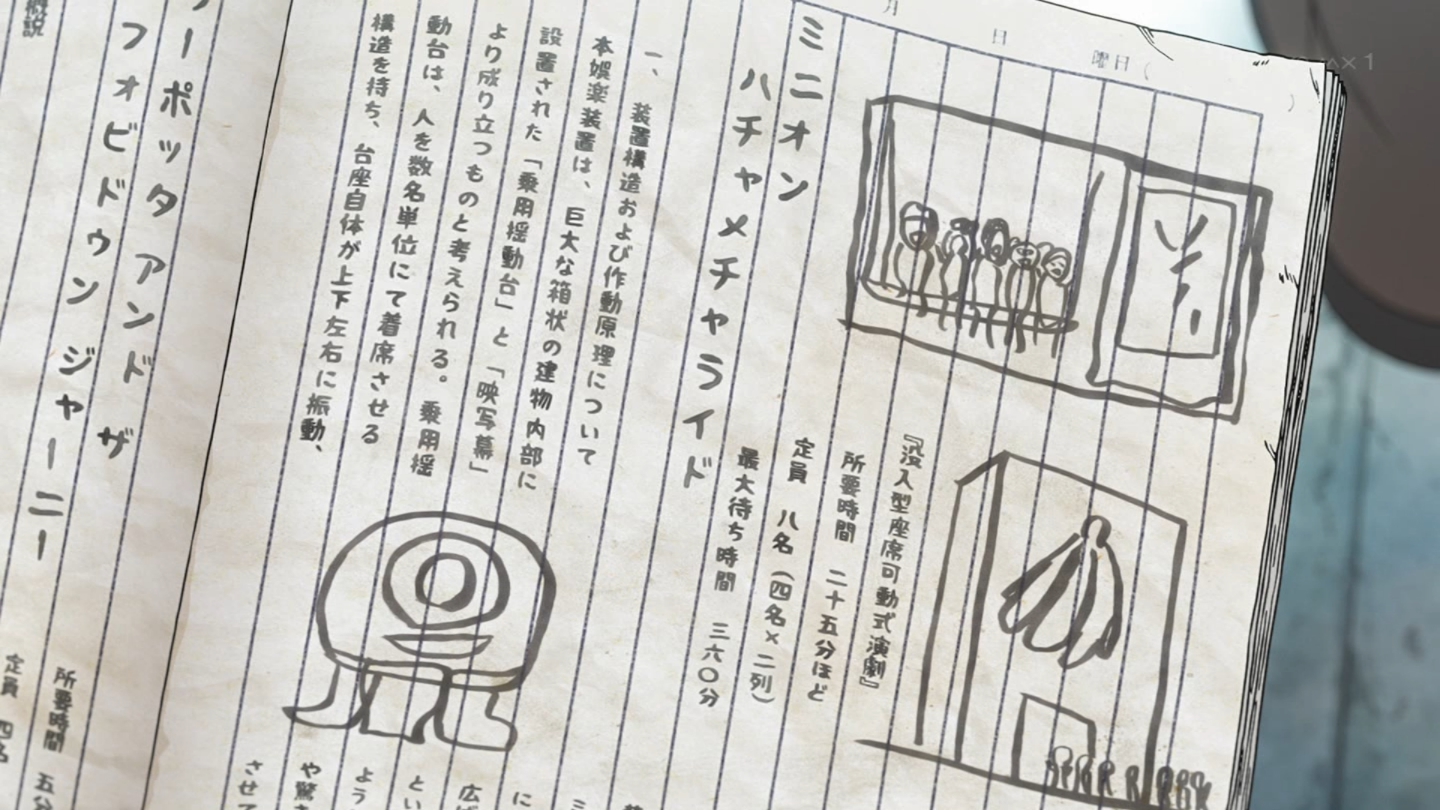 月 日 曜日(
『没入型座席可動式演劇』
所要時間 二十五分ほど
定員 八名(四名×二列)
最大待ち時間 三六〇分
ミニオン
ハチャメチャライド
一、装置構造および作動原理について
本娯楽装置は、巨大な箱状の建物内部に
設置された「乗用揺動台」と「映写幕」
より成り立つものと考えられる。乗用揺
動台は、人を数名単位にて着席させる
構造を持ち、台座自体が上下左右に振動、
に
広
とい
よう
や驚
させて
ーポッタ アンド ザ
フォビドゥン ジャーニー
所要時間 五分
定員 四名
概説